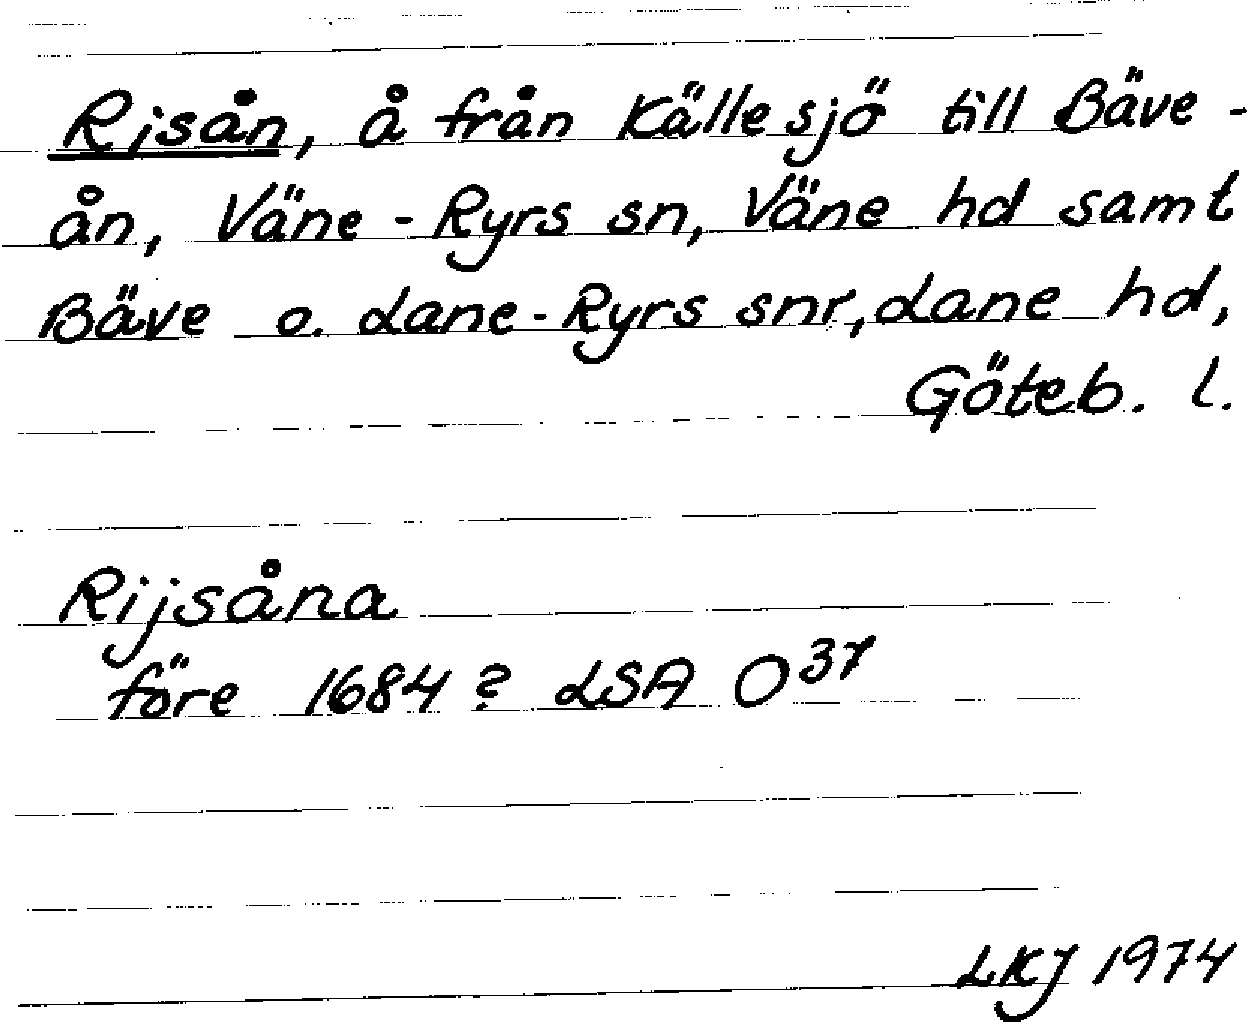 Risån, å från Källesjö till Bäve-
ån, Väne-Ryrs sn, Väne hd samt
Bäve o. Lane-Ryrs snr, Lane hd,
Göteb. l.
Rijsåna
före 1684? LSA O³⁷
LKJ 1974